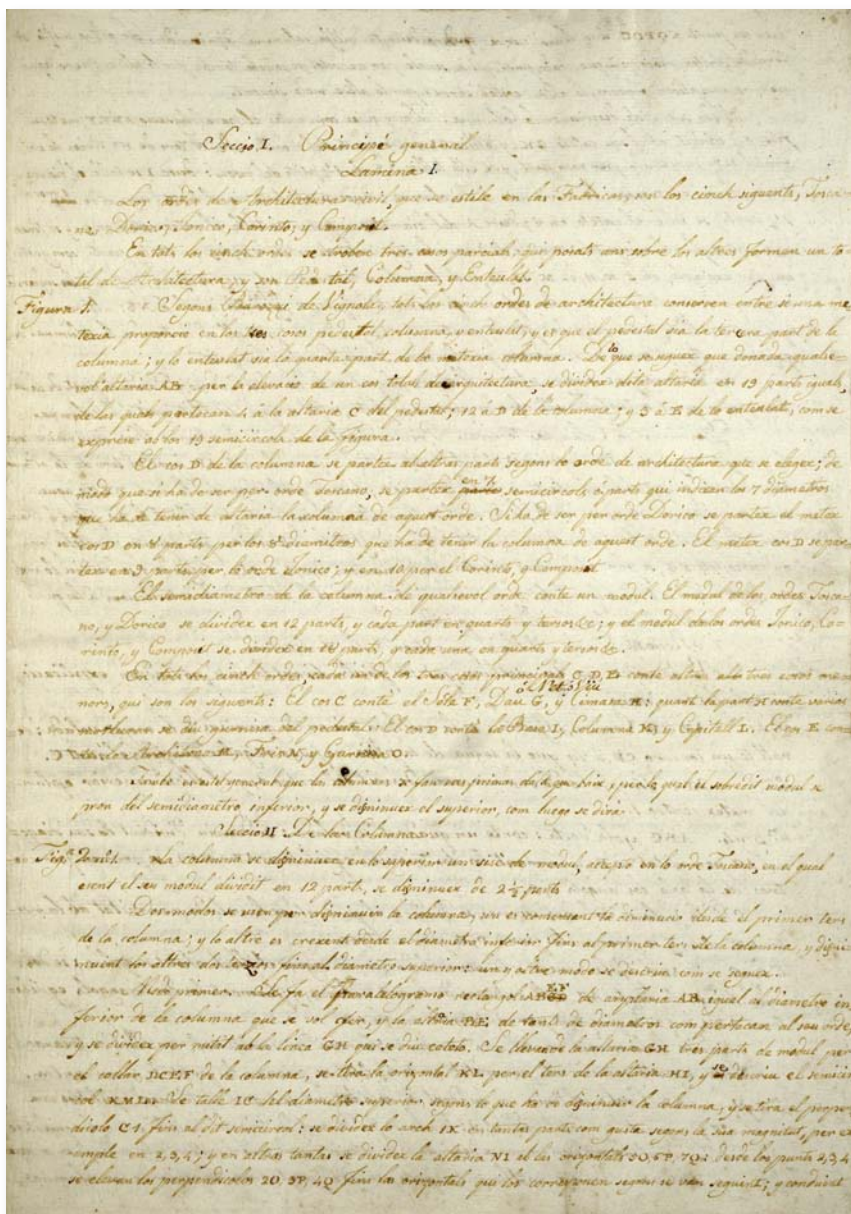 Seccio I. Principis general
Lamina I.
Los ordes de Architectura civil, que se estile en las Fabricas, son los cinch siguents, Tosca-
no, Dorico, Jonico, Corinto, y Composit.
En tots los cinch ordes se troben tres cosos parcials, qui posats uns sobre los altres forman un to-
tal de Architectura, y son Pedestal, Columna, y Entaulat.
Figura 1. Segons Barozzi de Vignola, tots los cinch ordes de architectura conserven entre si una ma-
texia proporcio en los tres cosos pedestal, columna, y entaulat, y es que el pedestal sia la tercera part de la
columna; y lo entaulat sia la quarta part de la matexia columna. De lo que se segueix que donada qualse-
vol altaria AB per la elevacio de un cos total de arquitectura, se dividex dita altaria en 19 parts iguals,
de las quals pertocan 4 á la altaria C del pedestal; 12 á D de la columna; y 3 á E de lo entaulat, com se
expressa ab los 19 semicircols de la figura.
El cos D de la columna se partex ab altres parts segons lo orde de architectura que se elegex; de
modo que si ha de ser per orde Toscano, se partex en 7 semicircols ó parts qui indican los 7 diametros
que ha de tenir de altaria la columna de aquest orde. Si ha de ser per orde Dorico se partex el matex
cos D en 8 parts per los 8 diametros que ha de tenir la columna de aquest orde. El matex cos D se par-
tex en 9 parts per lo orde Jonico; y en 10 per el Corinto, y Composit.
El semidiametro de la columna de qualsevol orde conte un modul. El modul de los ordes Tosca-
no, y Dorico se dividex en 12 parts, y cada part en quarts y tersos &c; y el modul de los ordes Jonico, Co-
rinto, y Composit se dividex en 18 parts, y cada una en quarts y tersos &c.
En tots los cinch ordes, cada un de los tres cosos principals C, D, E conte altres tres cosos me-
nors, qui son los seguents: El cos C conte el Socle F, Dau G, y Cimasa H: quant la part H conte varias
motlluras se diu cornisa del pedestal. El cos D conte la Basa I, Columna K, y Capitell L. El cos E con-
te lo Architrau M, Fris N, y Cornisa O.
que las columnas se fan mes primas dalt que baix, per lo qual el sobredit modul se
pren del semidiametro inferior, y se diminuex el superior, com luego se dirá.
Seccio II. De las Columnas.
Fig.ª La columna se diminuex en lo superior un sise de modul, excepto en lo orde Toscano, en el qual
essent el seu modul dividit en 12 parts, se diminuex de 2 ½ parts.
Dos modos se usen per diminuir la columna, un es comensant la diminucio desde el primer ters
de la columna; y lo altre es crexent desde el diametro inferior fins al primer ters de la columna, y dismi-
nuint los altres dos tersos fins al diametro superior: un y altre modo se descriu com se seguex.
Modo primer. Se fa el paralelogramo rectangol ABEF de amplaria AB igual al diametro in-
ferior de la columna que se vol fer, y la altaria BE de tants de diametros com pertocan al seu orde,
y se dividex per mitit ab la linea GH qui se diu cateto. Se lleva de la altaria GH tres parts de modul per
el collar DCEF de la columna, se tira la orizontal KL per el ters de la altaria HI, y se descriu el semicir-
col KML. Se talle IC del diametro superior, segons lo que ha de diminuir la columna, y se tira el perpen-
dicolo C1 fins al dit semicircol: se dividex lo arch 1K en tantas parts com gusta segons la sua magnitut, per ex-
emple en 2, 3, 4; y en altras tantas se dividex la altaria NI ab las orizontals 5O, 6P, 7Q: desde los punts 2, 3, 4
se elevan los perpendicolos 2O, 3P, 4Q fins las orizontals que los corresponen segons se van seguint; y conduint